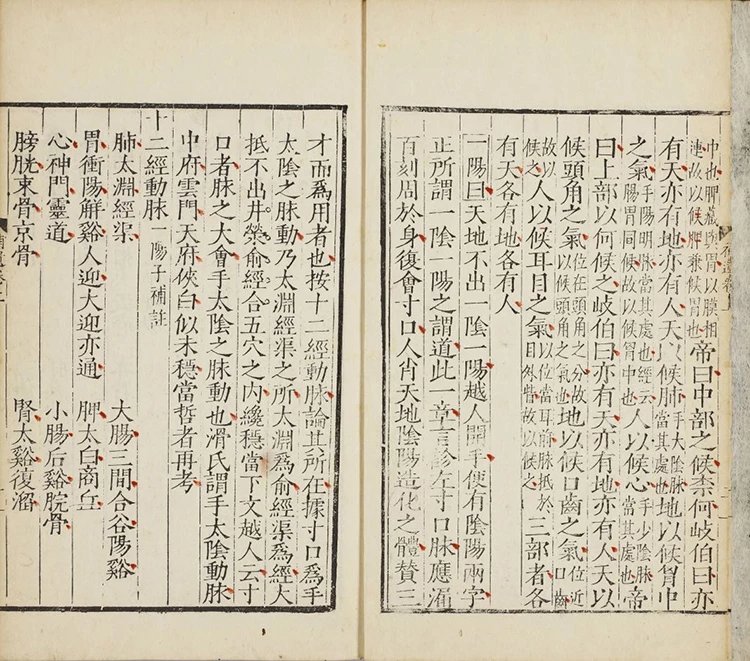 中也脾藏與胃以膜相
連故以候脾兼候胃也帝曰中部之候柰何岐伯曰亦
有天亦有地亦有人天以候肺手太陰脉當其處也地以候胷中
之氣手陽明脉當其處也經云腸胃同候故以候胷中也人以候心手少陰脉當其處也帝
曰上部以何候之岐伯曰亦有天亦有地亦有人天以
候頭角之氣位在頭角之分故以候頭角之氣也地以候口齒之氣位近口齒
故以候之人以候耳目之氣以位當耳前脉抵於目外眥故以候之三部者各
有天各有地各有人
一陽曰天地不出一陰一陽越人開手便有陰陽兩字
正所謂一陰一陽之謂道此一章言診左寸口脉應漏
百刻周於身復會寸口人肖天地陰陽造化之體贊三
才而爲用者也按十二經動脉論其所在據寸口爲手
太陰之脉動乃太淵經渠之所太淵爲俞經渠爲經大
抵不出井滎俞經合五穴之内纔穩當下文越人云寸
口者脉之大會手太陰之脉動也滑氏謂手太陰動脉
中府雲門天府俠白似未穩當哲者再考
十二經動脉 一陽子補註
肺太淵經渠 大腸三間合谷陽谿
胃衝陽解谿人迎大迎亦通 脾太白商丘
心神門靈道 小腸后谿脘骨
膀胱束骨京骨 腎太谿復溜